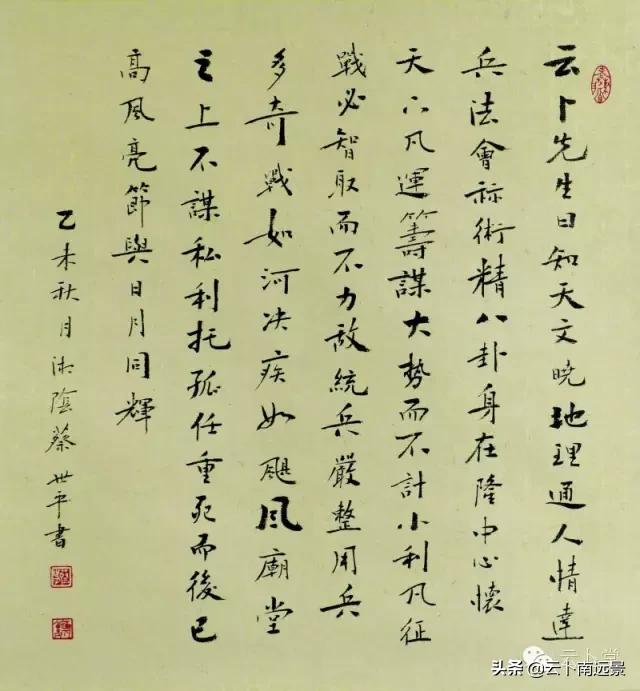 云卜先生曰知天文晓地理通人情達
兵法會祘術精八卦身在隆中心懷
天下凡運籌謀大势而不計小利凡征
戰必智取而不力敌統兵嚴整用兵
多奇戰如河决疾如飓风廟堂
之上不謀私利托孤任重死而後已
高风亮節與日月同輝
乙未秋月湘陰蔡世平書
云卜堂
头条 @云卜南远景